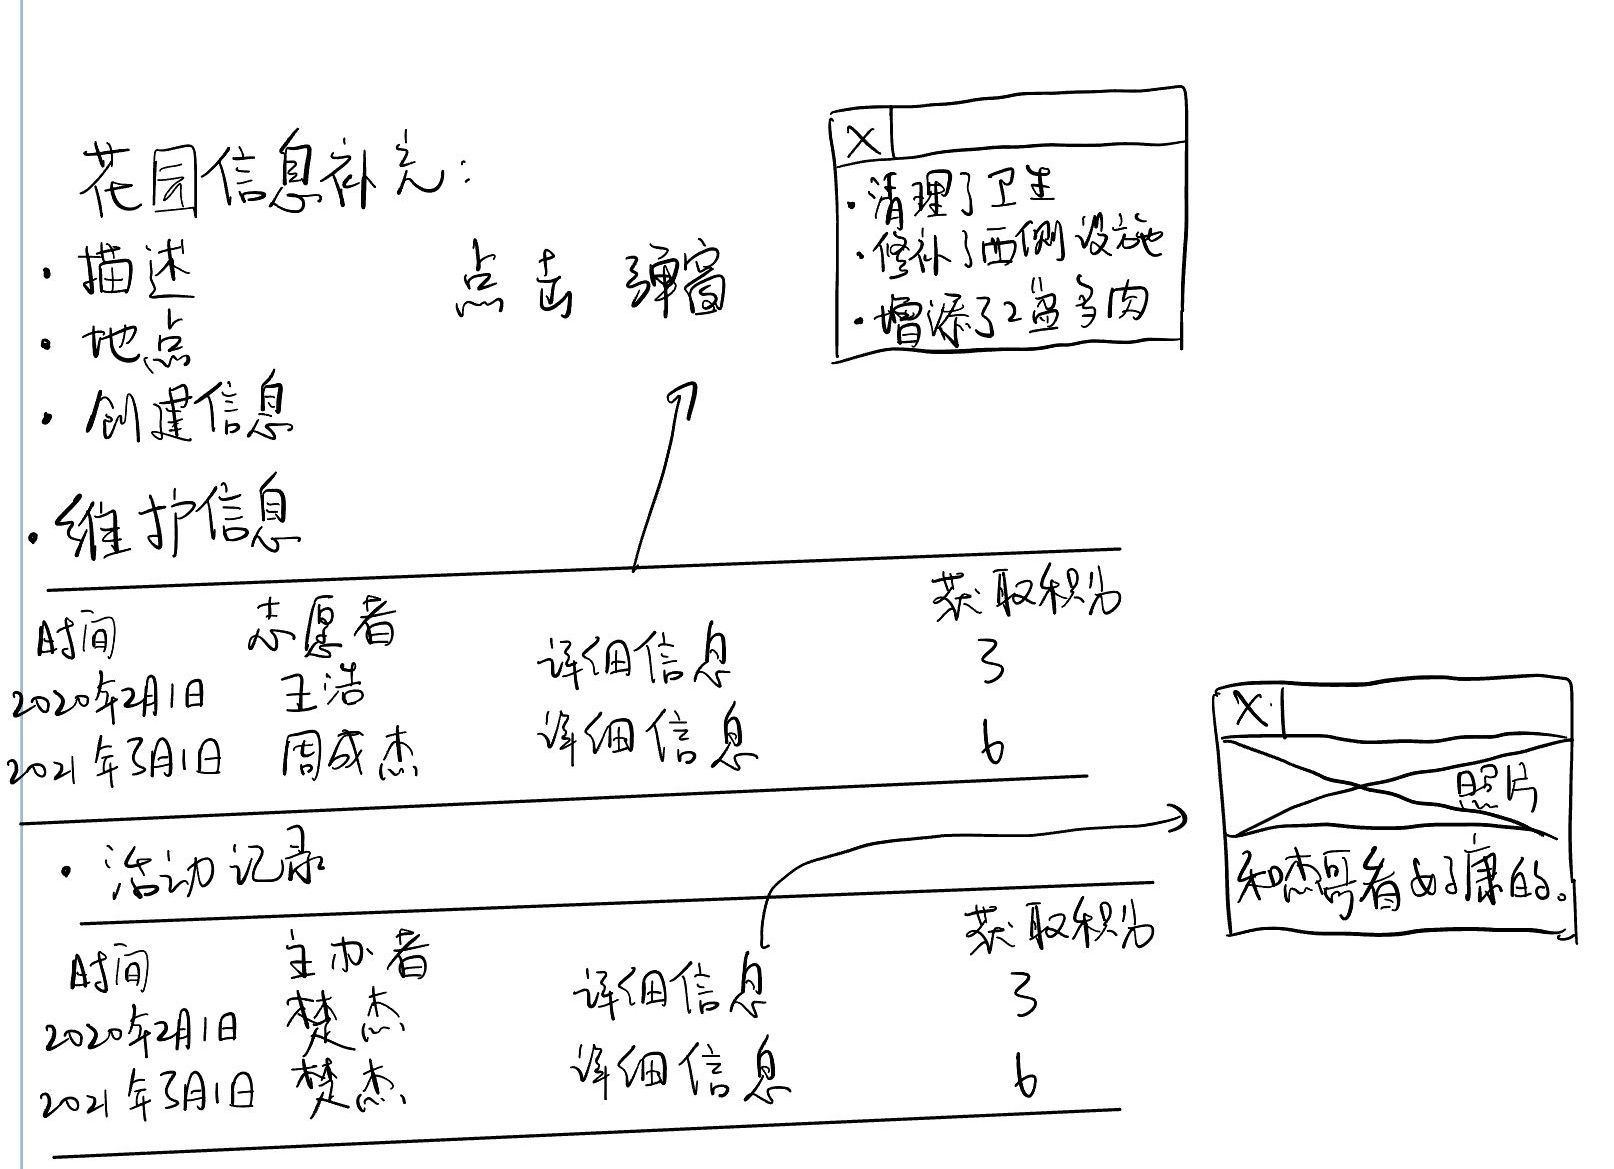 花园信息补充:
· 描述
· 地点
· 创建信息
点击 弹窗
X
· 清理了卫生
· 修补了西侧设施
· 增添了2盆多肉
· 维护信息
时间 志愿者 获取积分
2020年2月1日 王浩 详细信息 3
2021年3月1日 周成杰 详细信息 6
· 活动记录
时间 主办者 获取积分
2020年2月1日 楚杰 详细信息 3
2021年3月1日 楚杰 详细信息 6
X
照片
和杰哥看好康的。